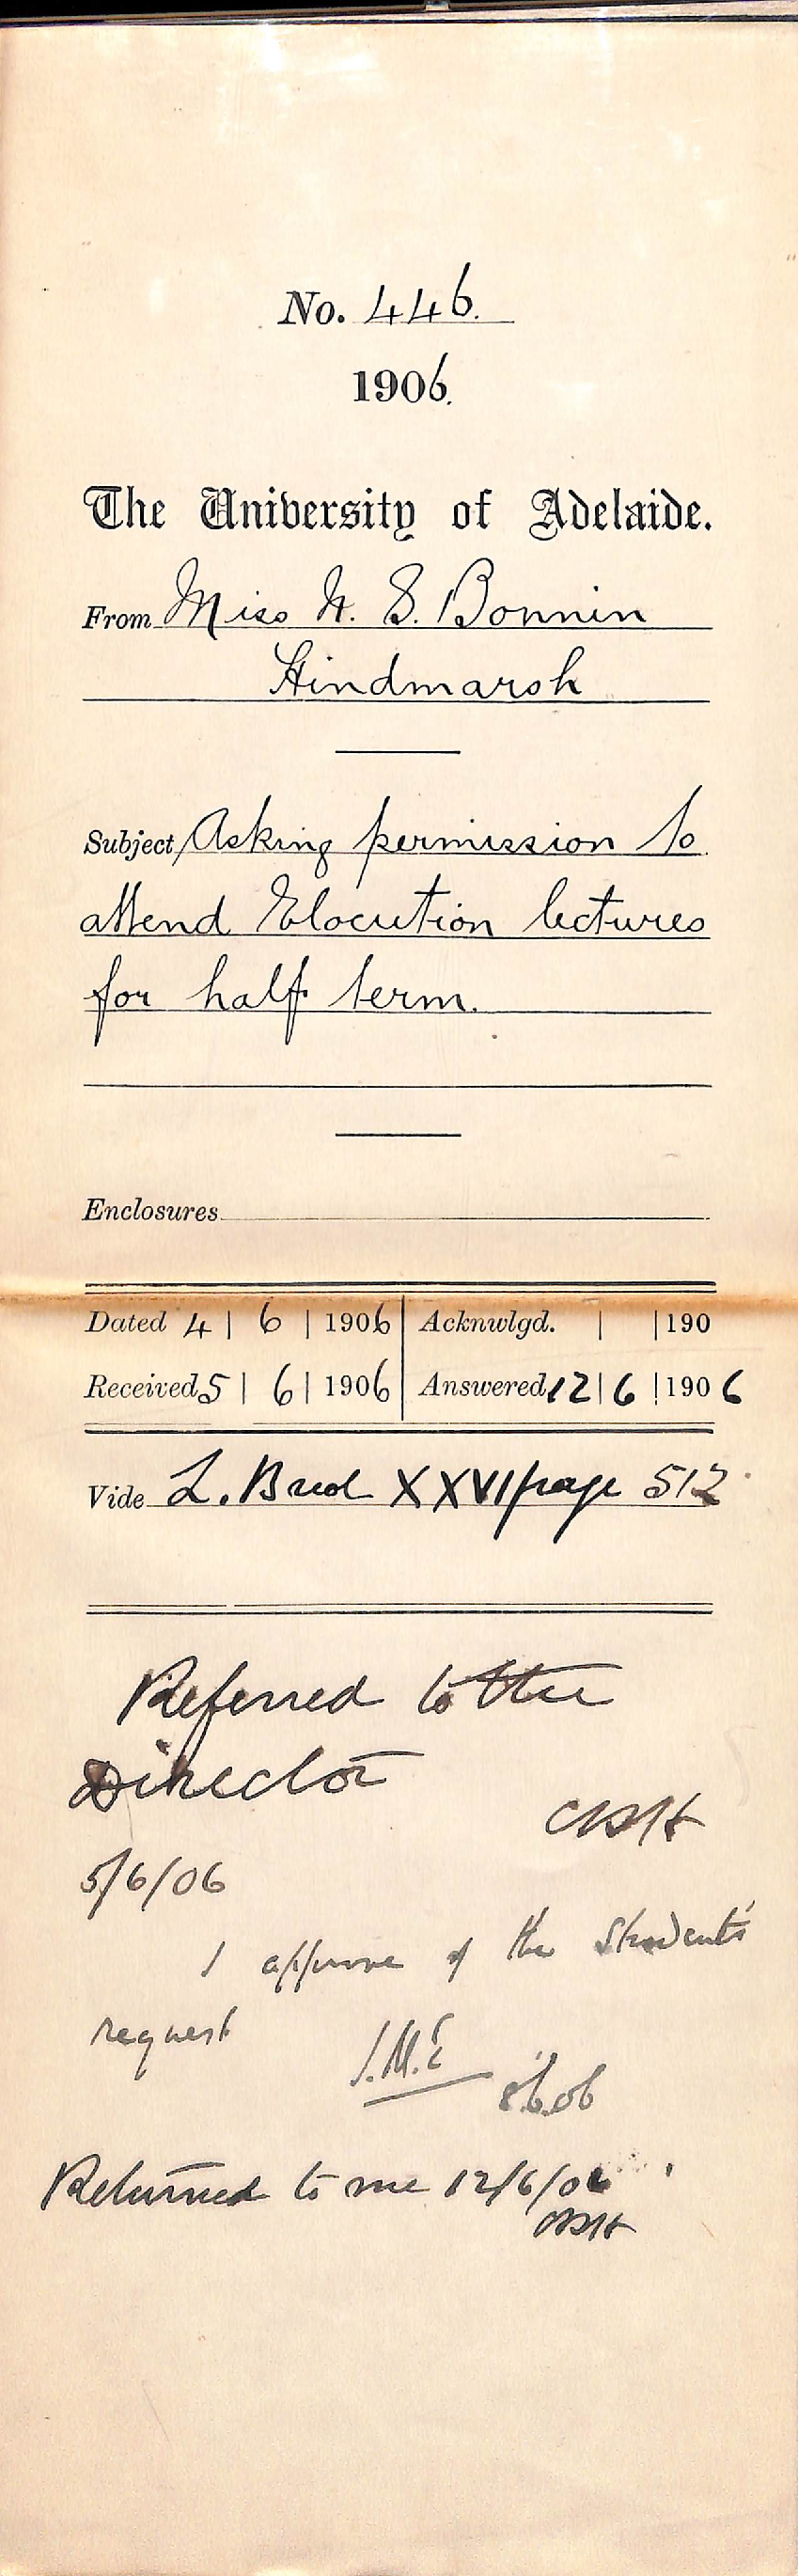 No. 446.
1906.
The University of Adelaide.
From Miss N. S. Bonnin
Hindmarsh
Subject Asking permission to
attend Elocution lectures
for half term.
Enclosures
Dated 4 | 6 | 1906 | Acknwlgd. | | 190
Received 5 | 6 | 1906 | Answered 12 | 6 | 1906
Vide L. Book XXVI page 512
Referred to the
Director
CRH
5/6/06
I approve of the Student's
request
J.M.E
8.6.06
Returned to me 12/6/06
CRH